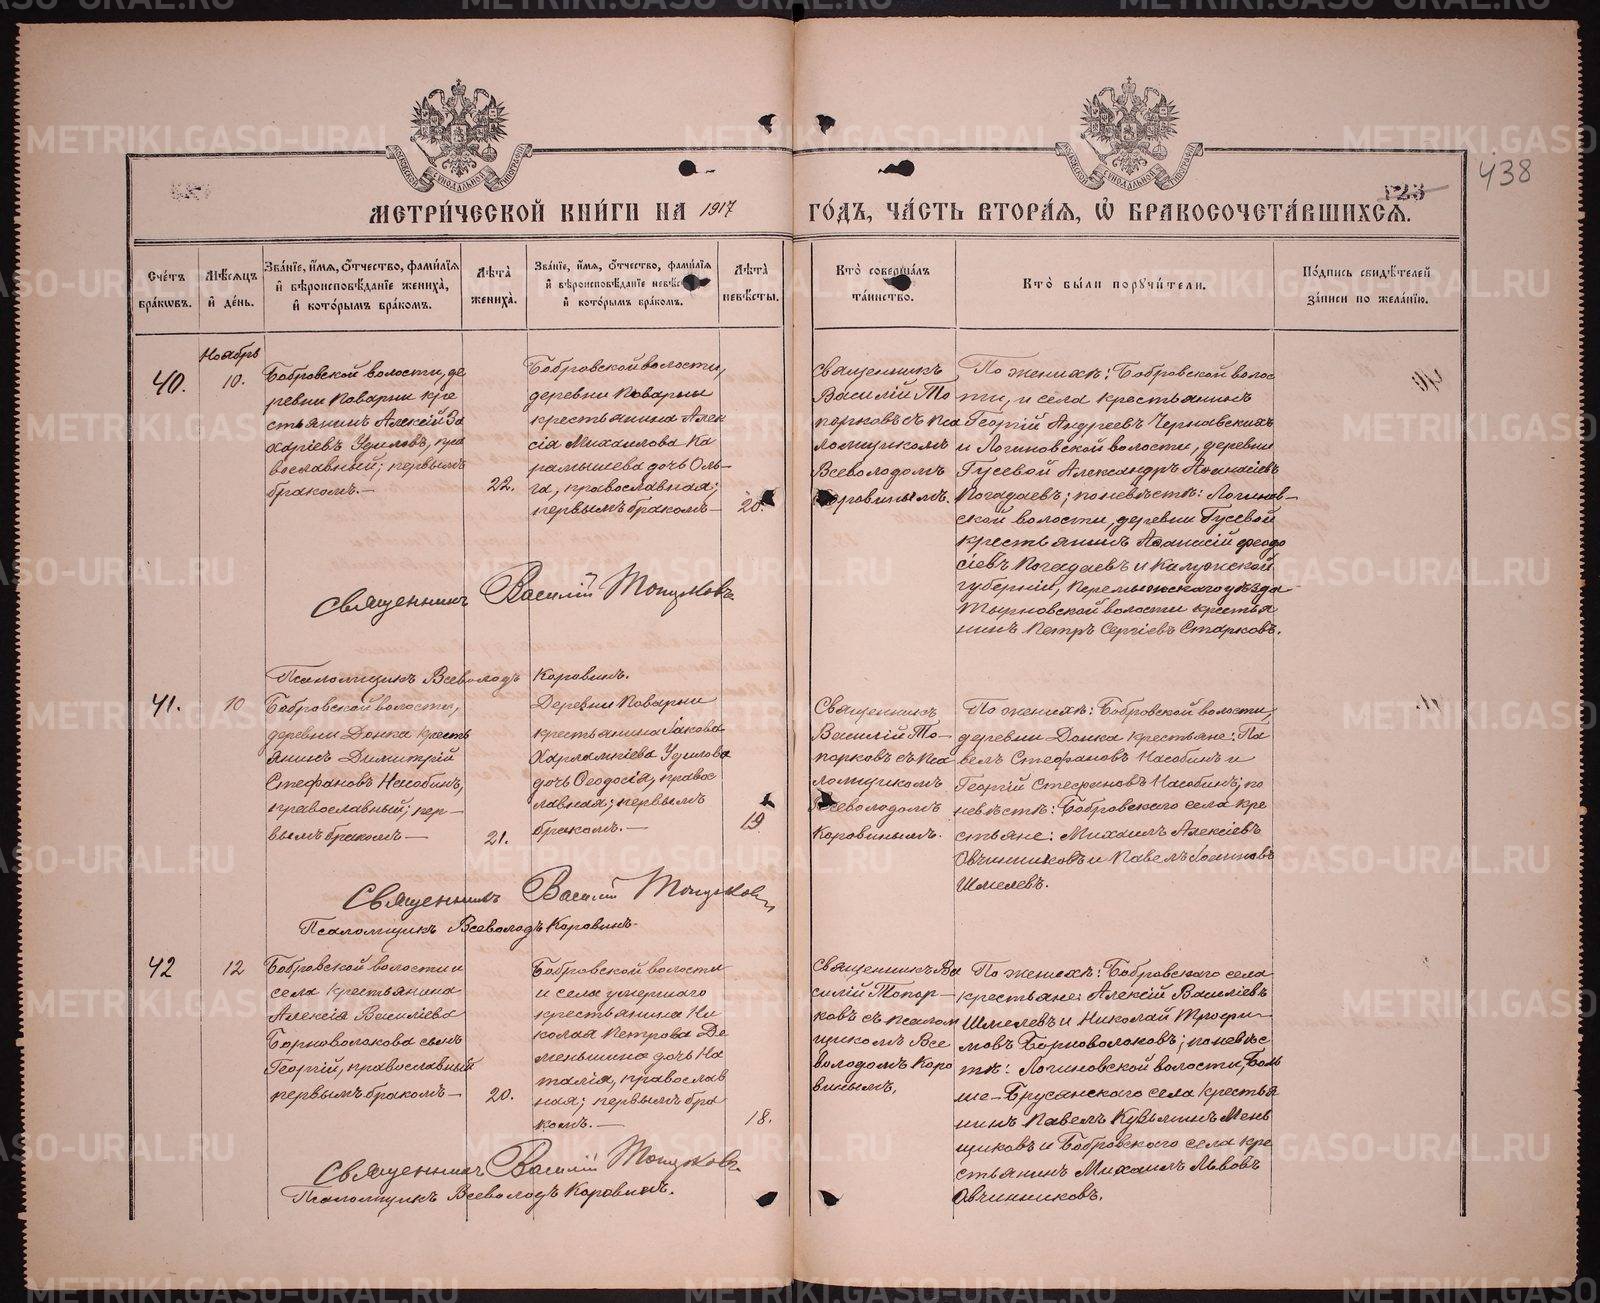 438
123
МЕТРИ́ЧЕСКОЙ КНИ́ГИ НА 1917 ГО́ДЪ, ЧА́СТЬ ВТОРА́Я, Ѡ БРАКОСОЧЕТА́ВШИХСЯ.
Сче́тъ бра́кѡвъ.
Мѣ́сяцъ и҆ де́нь.
Зва́нїе, и҆́мя, ѻ҆́тчество, фами́лїя и҆ вѣроисповѣ́данїе жениха̀, и҆ кото́рымъ бра́комъ.
Лѣ́та жениха̀.
Зва́нїе, и҆́мя, ѻ҆́тчество, фами́лїя и҆ вѣроисповѣ́данїе невѣ́сты, и҆ кото́рымъ бра́комъ.
Лѣ́та невѣ́сты.
Кто̀ соверша́лъ та́инство.
Кто̀ бы́ли порꙋчи́тели.
По́дпись свидѣ́телей за́писи по жела́нїю.
40.
Ноябрь
10.
Бобровской волости, де
ревни Поварни кре
стьянинъ Алексій За
харіевъ Удиловъ, пра
вославный; первымъ
бракомъ.—
22.
Бобровской волости,
деревни Поварни
крестьянина Алек
сія Михаилова Ка
рамышева дочь Оль-
га, православная;
первымъ бракомъ—
20.
Священникъ
Василій То
порковъ съ пса
ломщикомъ
Всеволодомъ
Коровинымъ.
По женихѣ: Бобровской волос
ти, и села крестьянинъ
Георгій Андреевъ Чернавскихъ
и Логиновской волости, деревни
Гусевой Александръ Аѳанасіевъ
Погадаевъ; по невѣстѣ: Логинов-
ской волости, деревни Гусевой
крестьянинъ Аѳанасій Феодо
сіевъ Погадаевъ и Калужской
губерніи, Перемышскаго уѣзда
Тырновской волости крестья
нинъ Петръ Сергіевъ Старковъ.
Священникъ Василій Топорковъ
Псаломщикъ Всеволодъ Коровинъ.
41.
10
Бобровской волости,
деревни Донка кресть
янинъ Димитрій
Стефановъ Насобинъ,
православный; пер-
вымъ бракомъ—
21.
Деревни Поварни
крестьянина Іакова
Харлампіева Удилова
дочь Ѳеодосія, правос
лавная; первымъ
бракомъ.—
19
Священникъ
Василій То-
порковъ съ пса
ломщикомъ
Всеволодомъ
Коровинымъ.
По женихѣ: Бобровской волости,
деревни Донка крестьяне: Па
велъ Стефановъ Насобинъ и
Георгій Стефановъ Насобинъ; по
невѣстѣ: Бобровскаго села кре
стьяне: Михаилъ Алексіевъ
Овчинниковъ и Павелъ Іоанновъ
Шмелевъ.
Священникъ Василій Топорковъ
Псаломщикъ Всеволодъ Коровинъ.
42
12
Бобровской волости и
села крестьянина
Алексія Василіева
Борноволокова сынъ
Георгій, православный
первымъ бракомъ—
20.
Бобровской волости
и села умершаго
крестьянина Ни
колая Петрова Де
меньшина дочь На
талія, православ
ная; первымъ бра
комъ.—
18.
Священникъ Ва
силій Топор-
ковъ съ псалом
щикомъ Все
володомъ Коро
винымъ.
По женихѣ: Бобровскаго села
крестьяне: Алексій Василіевъ
Шмелевъ и Николай Трофи-
мовъ Борноволоковъ; по невѣс
тѣ: Логиновской волости, Боль
ше-Брусянскаго села крестья
нинъ Павелъ Кузьминъ Мень
щиковъ и Бобровскаго села кре
стьянинъ Михаилъ Львовъ
Овчинниковъ.
Священникъ Василій Топорковъ.
Псаломщикъ Всеволодъ Коровинъ.
METRIKI.GASO-URAL.RU